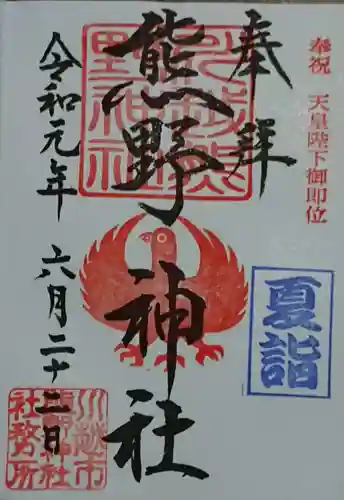 奉祝 天皇陛下御即位
奉拝
川越熊野神社
熊野神社
夏詣
令和元年 六月二十二日
川越市熊野神社社務所